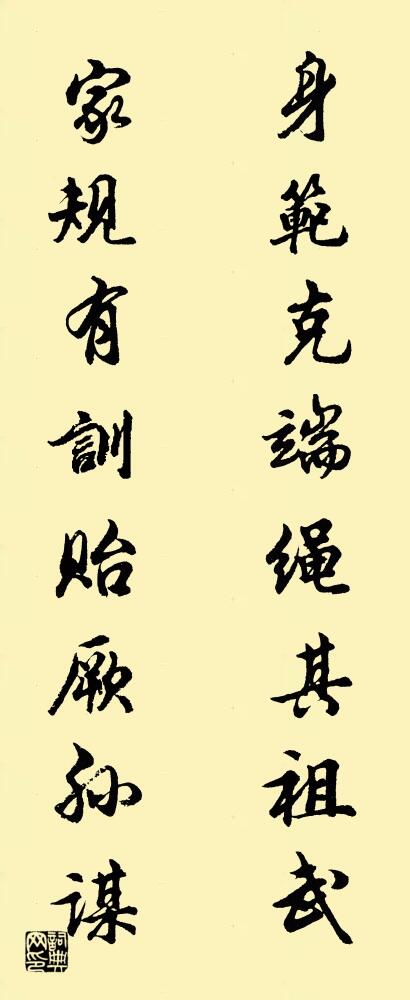 身範克端绳其祖武
家規有訓贻厥孙谋
詞典网印